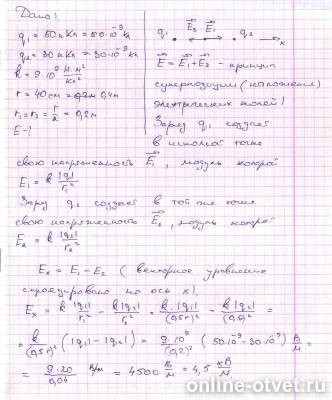 Дано:
q₁ = 50 нКл = 50·10⁻⁹ Кл
q₂ = 30 нКл = 30·10⁻⁹ Кл
k = 9·10⁹ Н·м²/Кл²
r = 40 см = 0,4 м
r₁ = r₂ = r/2 = 0,2 м
E - ?
q₁ E₂ E₁ q₂ x
E = E₁ + E₂ - принцип
суперпозиции (наложения)
электрических полей!
Заряд q₁ создает
в искомой точке
свою напряженность E₁, модуль которой
E₁ = k |q₁|/r₁²
Заряд q₂ создает в той же точке
свою напряженность E₂, модуль которой
E₂ = k |q₂|/r₂²
Eₓ = E₁ - E₂ (векторное уравнение
спроецировано на ось x).
Eₓ = k |q₁|/r₁² - k |q₂|/r₂² = k |q₁|/(0,5r)² - k |q₂|/(0,5r)² =
= k/(0,5r)² (|q₁| - |q₂|) = 9·10⁹/(0,2)² (50·10⁻⁹ - 30·10⁻⁹) В/м =
= 9·20/0,04 В/м = 4500 В/м = 4,5 кВ/м
online-otvet.ru